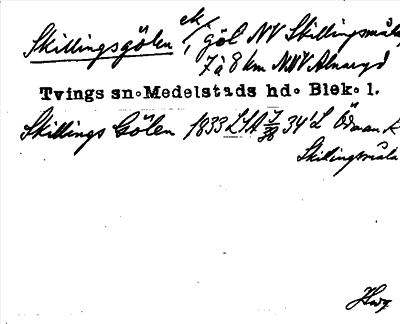 Skillingsgölen ek/, göl NV Skillingsmåla,
7 à 8 km NNV Alnaryd
Tvings sn. Medelstads hd. Blek. l.
Skillings Gölen 1833 LSA 34 L Ödman k
Skillingsmåla